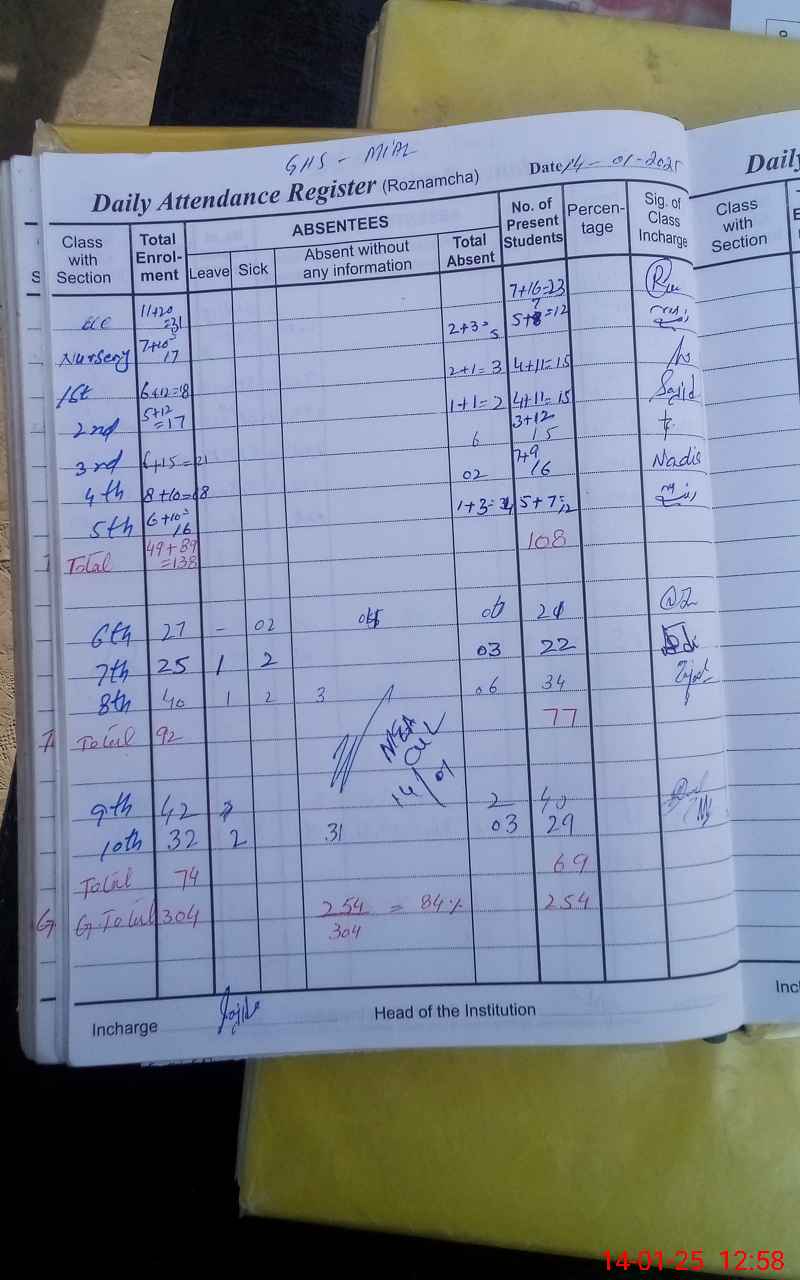 GHS - MIAL
Daily Attendance Register (Roznamcha) Date 14-01-2025
Class with Section Total Enrol-ment ABSENTEES Leave Sick Absent without any information Total Absent No. of Present Students Percen-tage Sig. of Class Incharge
ECE 11+20 =31 7+16=23
Nursery 7+10= 17 2+3= 5 5+7=12
1st 6+12=18 2+1=3 4+11=15
2nd 5+12 =17 1+1=2 4+11=15 Sajid
3rd 6+15=21 6 3+12 15
4th 8+10=18 02 7+9 16 Nadia
5th 6+10= 16 1+3=4 5+7= 12
Total 49+89 =138 108
6th 27 - 02 21
7th 25 1 2 03 22
8th 40 1 2 3 06 34
Total 92 77
MEA
14/01
9th 42 2 40
10th 32 2 31 03 29
Total 74 69
G.Total 304 254/304 = 84% 254
Incharge Head of the Institution
Daily
Class with Section
14-01-25 12:58